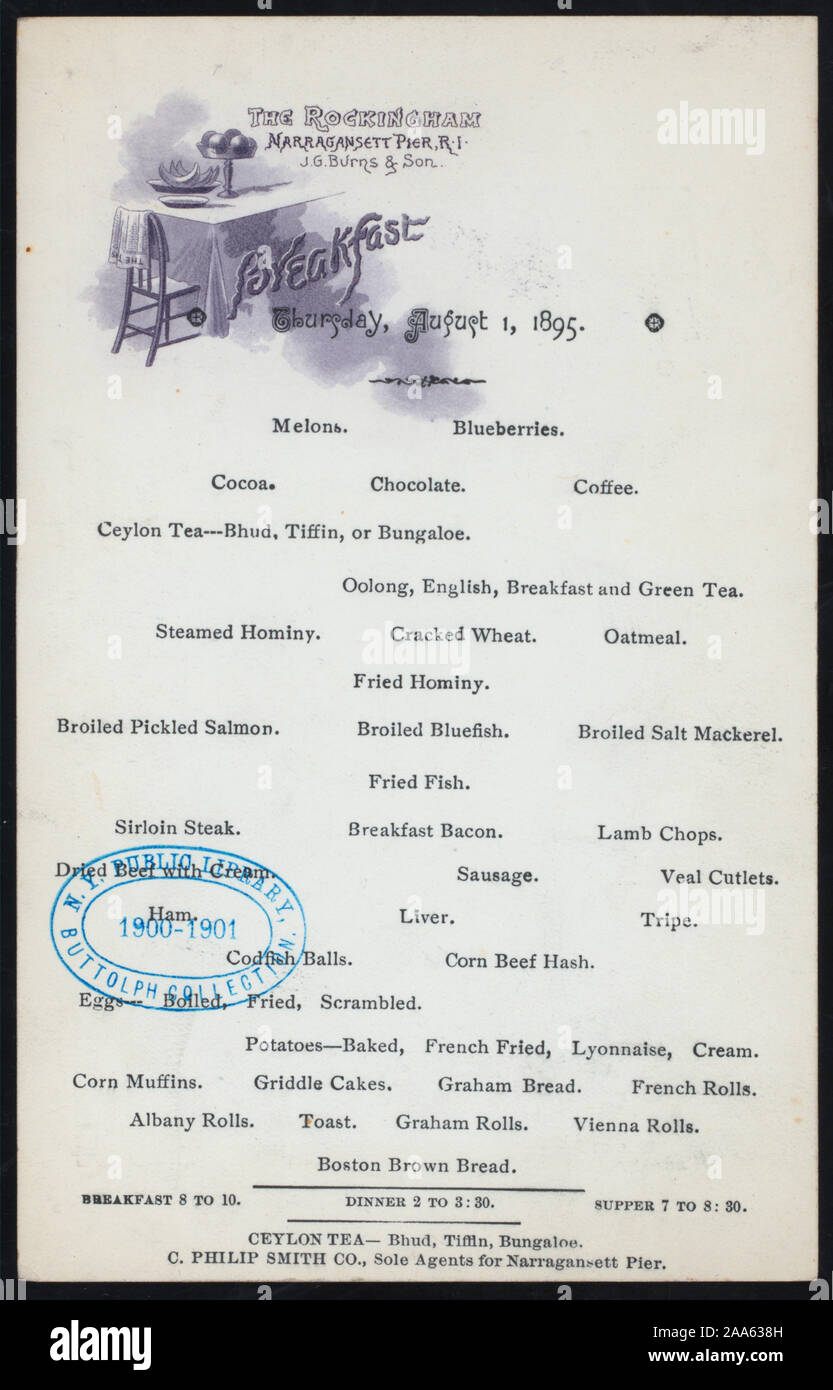 THE ROCKINGHAM
NARRAGANSETT PIER, R.I.
J.G. Burns & Son.
Breakfast
Thursday, August 1, 1895.
Melons. Blueberries.
Cocoa. Chocolate. Coffee.
Ceylon Tea---Bhud, Tiffin, or Bungaloe.
Oolong, English, Breakfast and Green Tea.
Steamed Hominy. Cracked Wheat. Oatmeal.
Fried Hominy.
Broiled Pickled Salmon. Broiled Bluefish. Broiled Salt Mackerel.
Fried Fish.
Sirloin Steak. Breakfast Bacon. Lamb Chops.
Dried Beef with Cream. Sausage. Veal Cutlets.
Ham. Liver. Tripe.
Codfish Balls. Corn Beef Hash.
Eggs--- Boiled, Fried, Scrambled.
Potatoes—Baked, French Fried, Lyonnaise, Cream.
Corn Muffins. Griddle Cakes. Graham Bread. French Rolls.
Albany Rolls. Toast. Graham Rolls. Vienna Rolls.
Boston Brown Bread.
BREAKFAST 8 TO 10. DINNER 2 TO 3:30. SUPPER 7 TO 8:30.
CEYLON TEA— Bhud, Tiffin, Bungaloe.
C. PHILIP SMITH CO., Sole Agents for Narragansett Pier.
N.Y. PUBLIC LIBRARY,
1900-1901
BUTTOLPH COLLECTION.
alamy
alamy
Image ID: 2AA638H
www.alamy.com